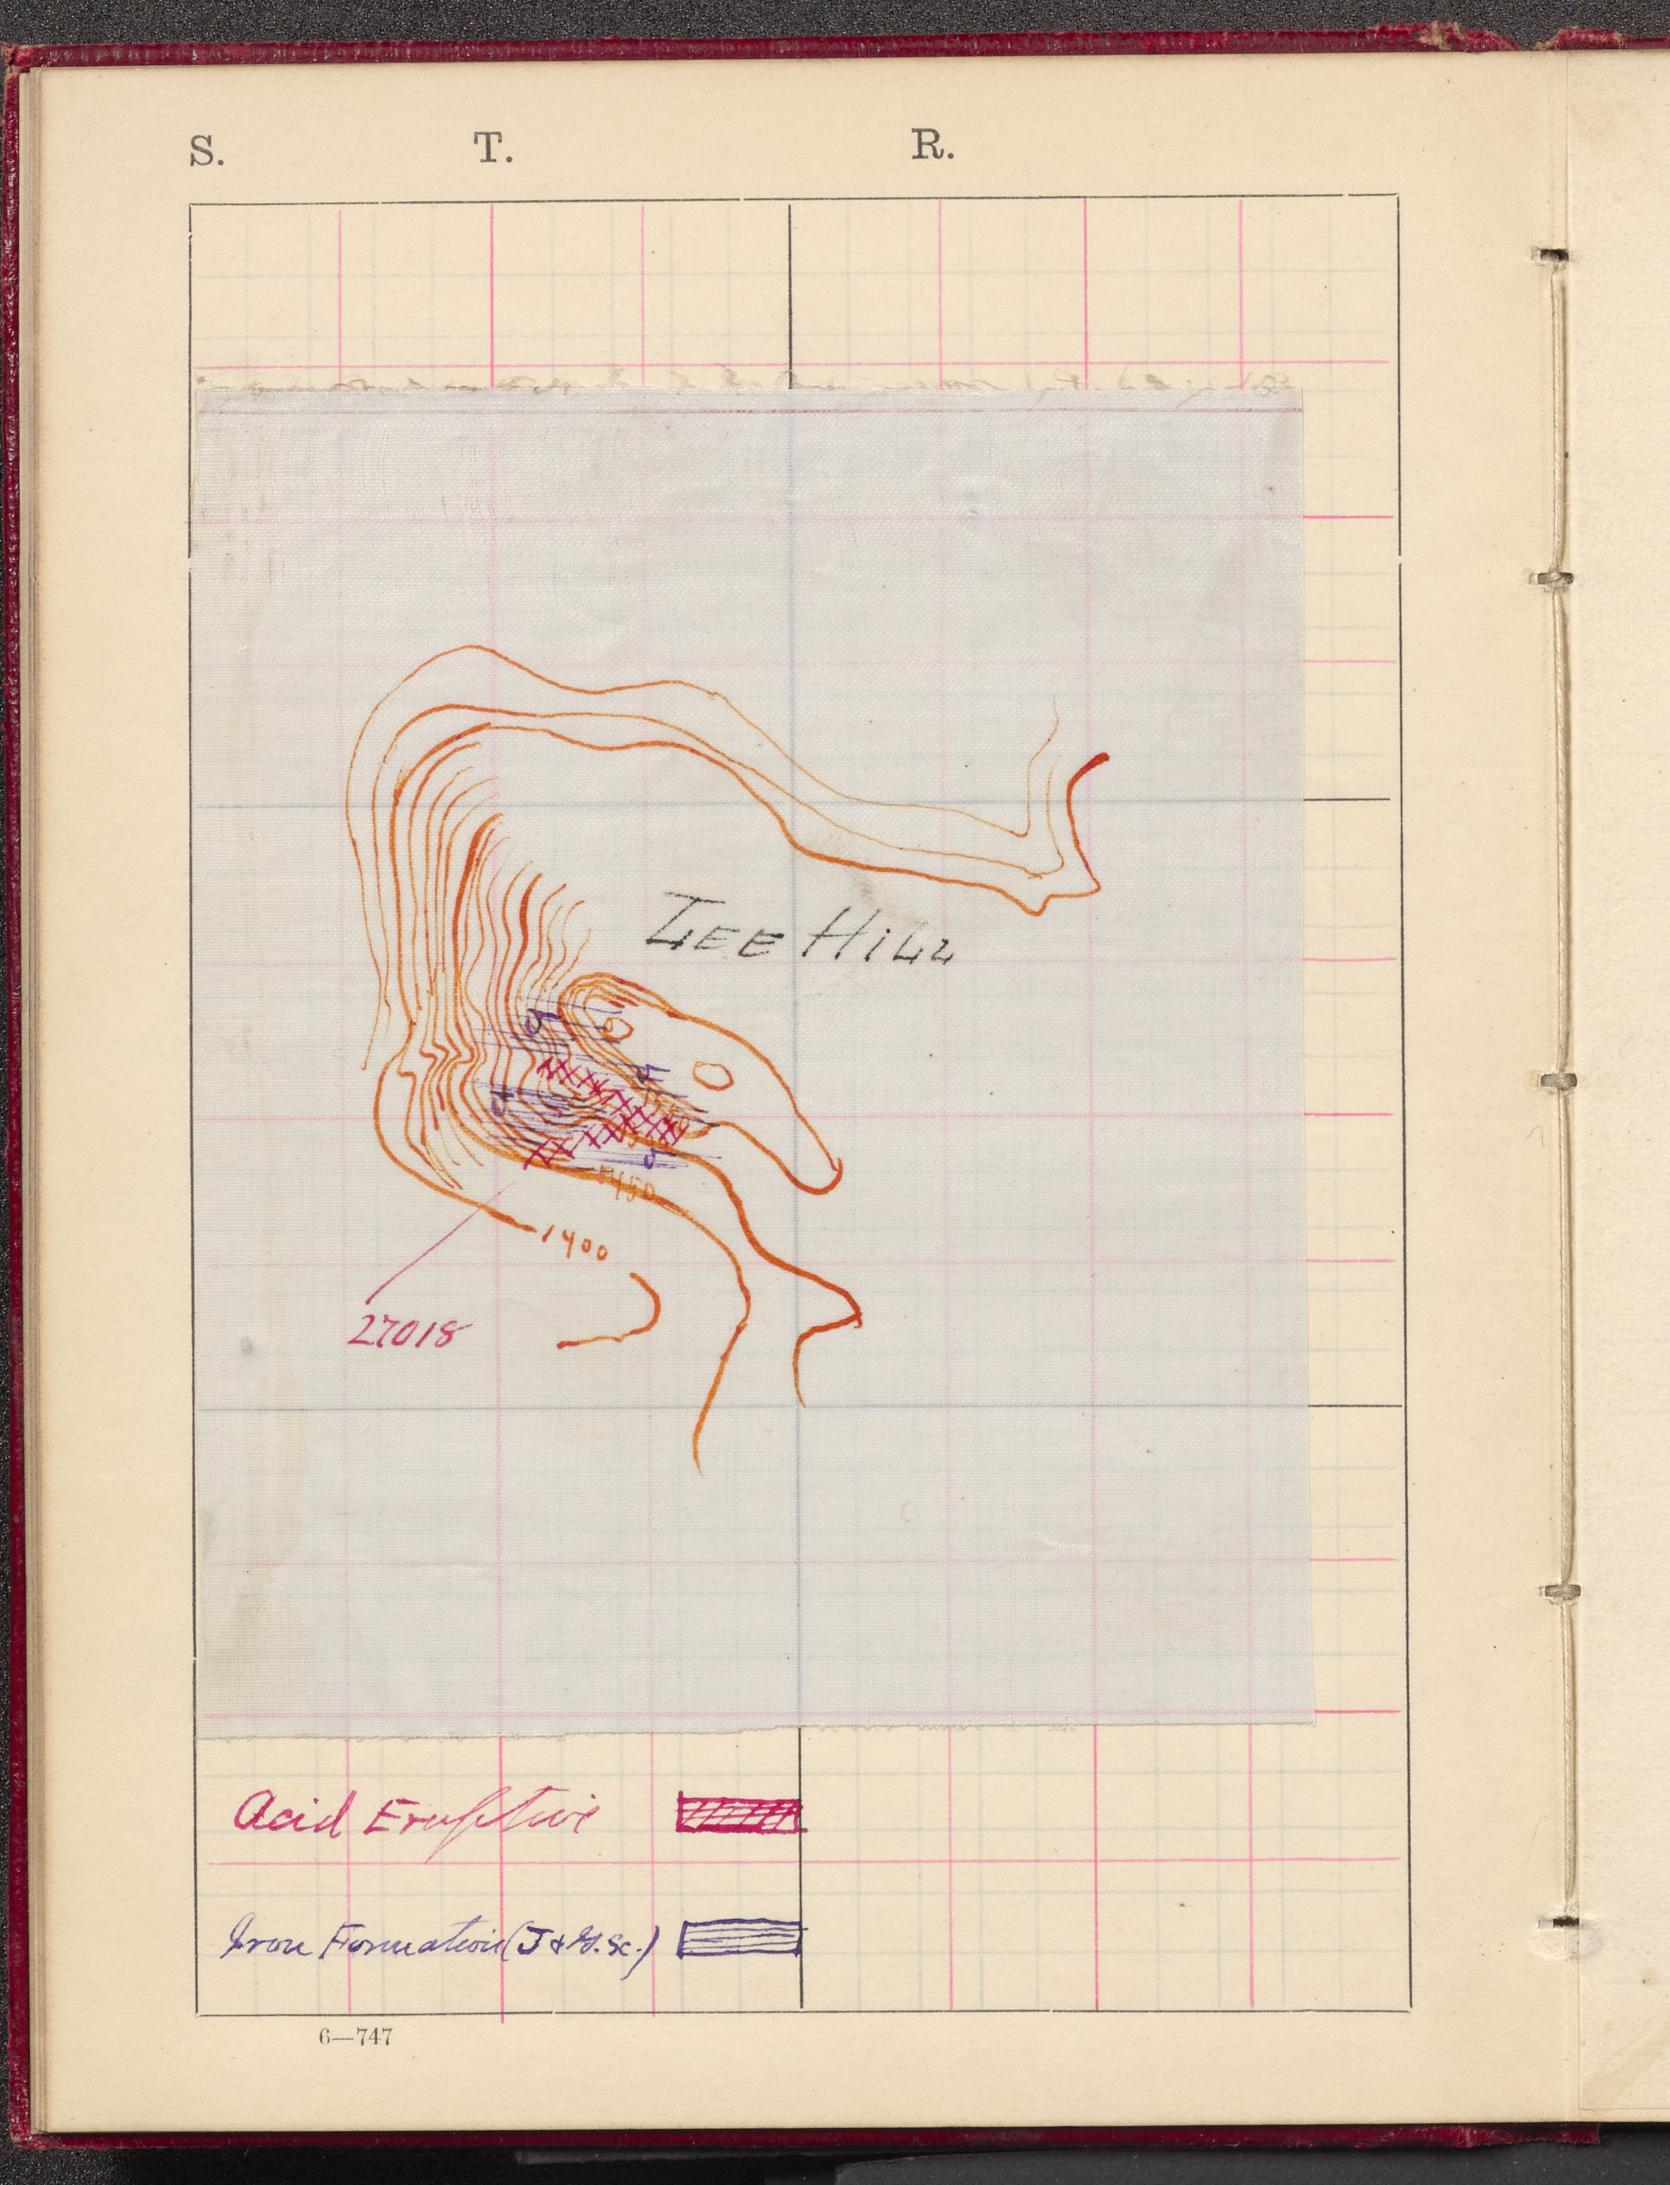 S. T. R.
LEE HiLL
1450
1400
27018
Acid Eruptive
Iron Formation (J & G. Sc.)
6—747